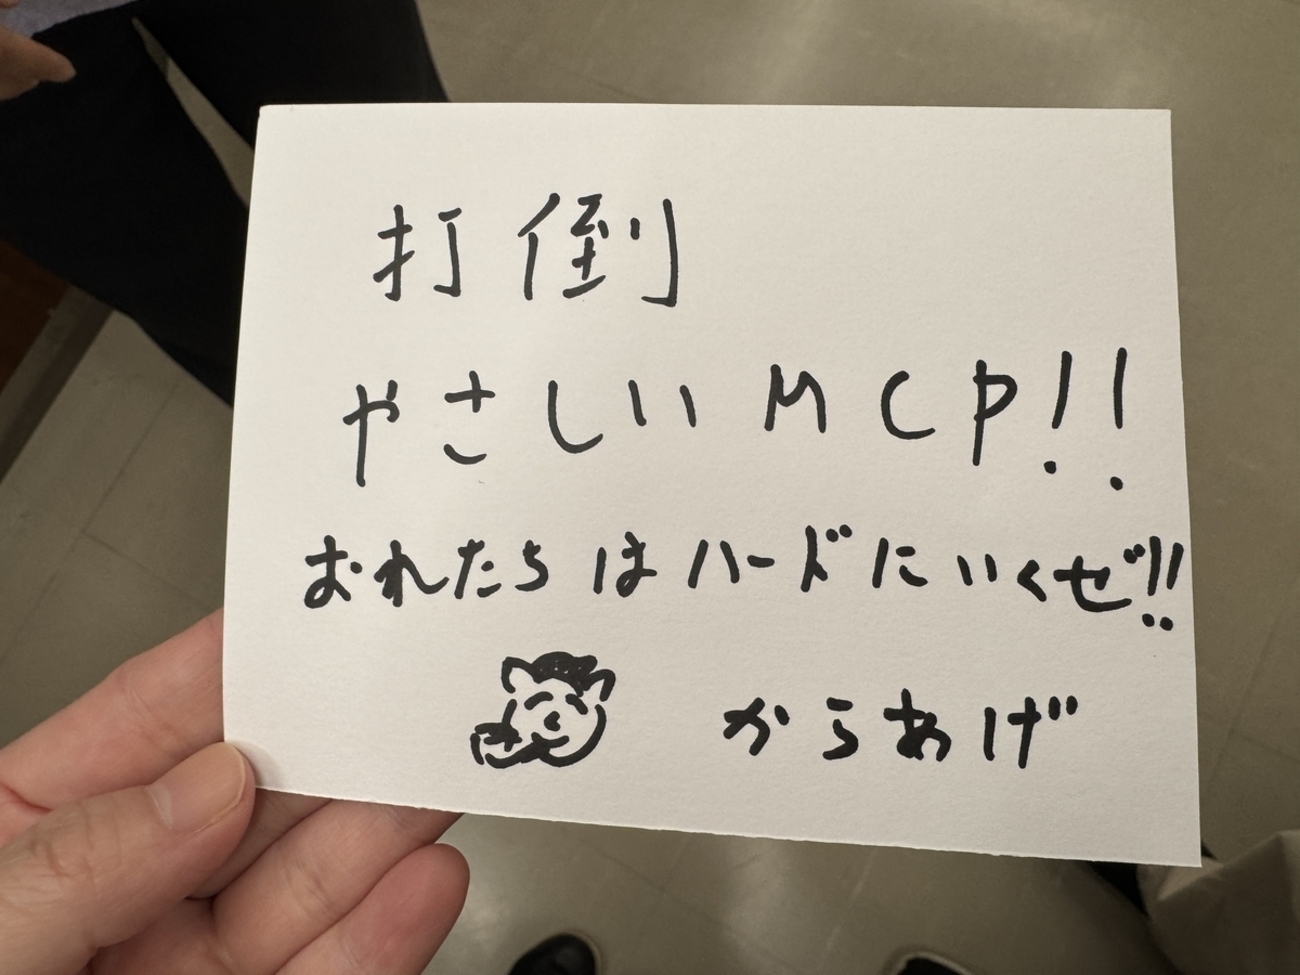 打倒
やさしいMCP!!
おれたちはハードにいくぜ!!
からあげ